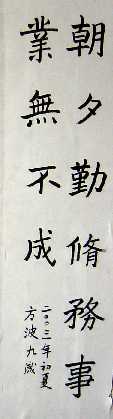 朝夕勤脩務事
業無不成
二〇〇三年初夏
方波九歲